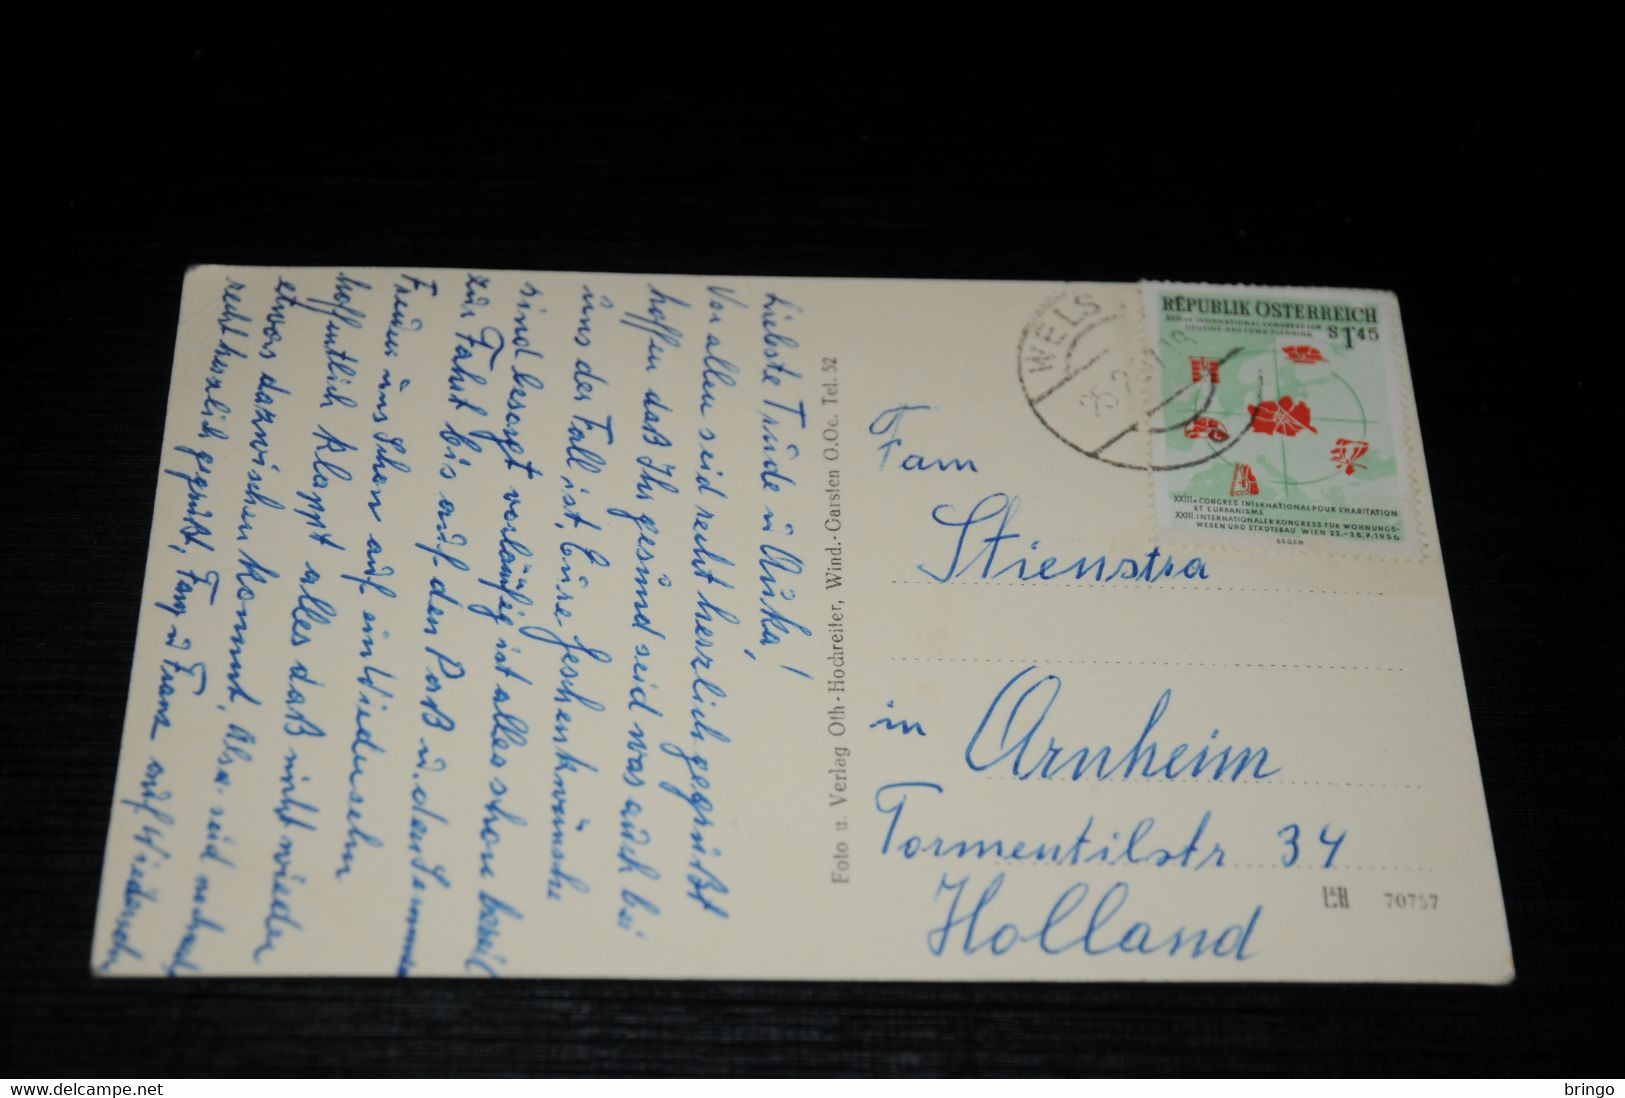 Liebste Trude u
Vor allem seid recht herzlich gegrüßt
hoffen daß Ihr gesund seid was auch bei
uns der Fall ist, Eure
sind besorgt vorläufig ist alles schon bereit
zur Fahrt bis auf den Paß u. den
Freuen uns schon auf ein Wiedersehn
hoffentlich klappt alles daß nicht wieder
etwas dazwischen kommt, Also seid nochmals
recht herzlich gegrüßt, u Franz auf Wiedersehn
Foto u. Verlag Oth-Hochreiter, Wind.-Garsten O.Oe. Tel. 52
WELS
REPUBLIK ÖSTERREICH
XXIIIrd INTERNATIONAL CONGRESS FOR
HOUSING AND TOWN PLANNING
S 1'45
XXIIIe CONGRES INTERNATIONAL POUR L'HABITATION
ET L'URBANISME
XXIII. INTERNATIONALER KONGRESS FÜR WOHNUNGS-
WESEN UND STÄDTEBAU WIEN 22.-28.9.1956
SEGER
Fam
Stienstra
in Arnheim
Tormentilstr 34
Holland
70757
Delcampe.net
bringo